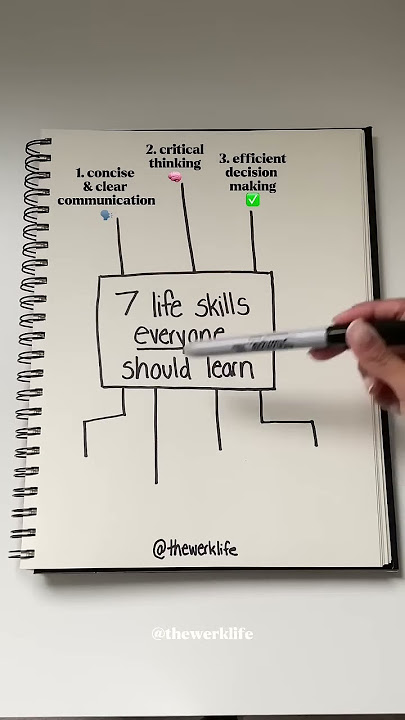 1. concise
& clear
communication
2. critical
thinking
3. efficient
decision
making
7 life skills
everyone
should learn
@thewerklife
@thewerklife